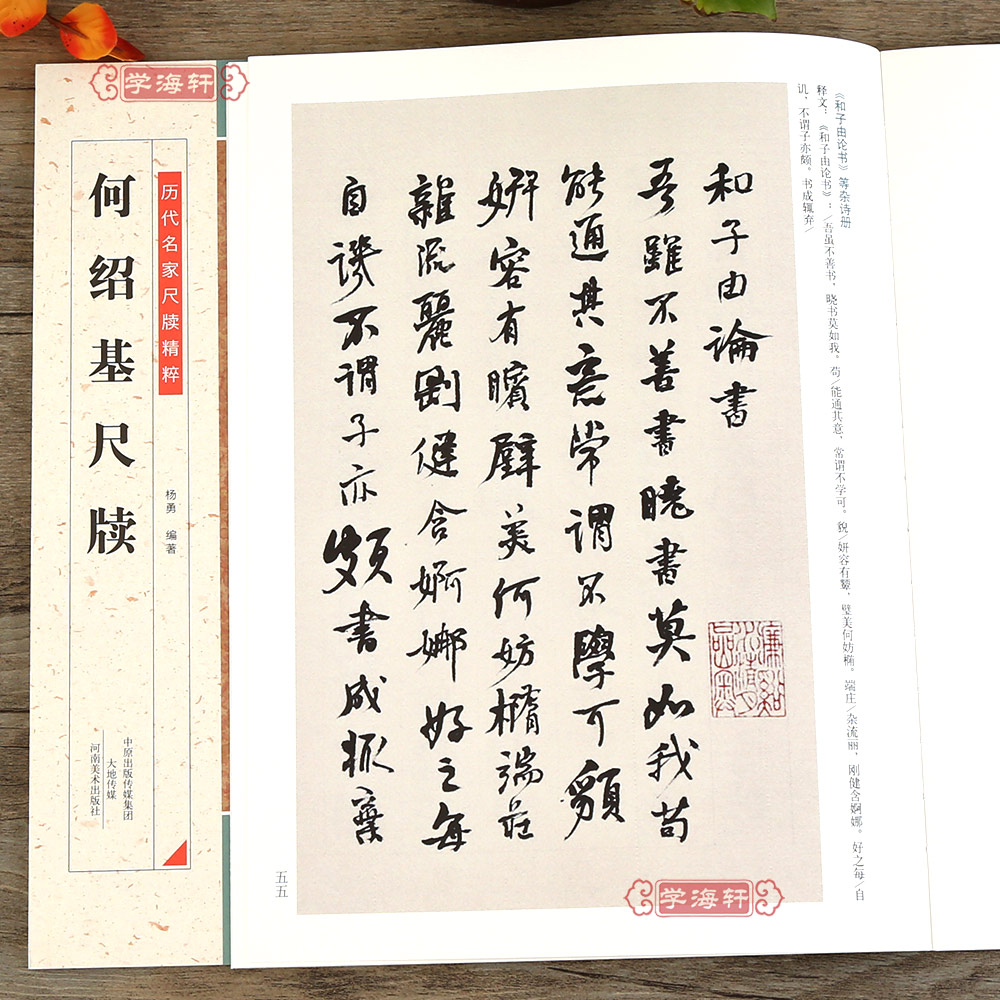 学海轩
历代名家尺牍精粹
何绍基尺牍
杨勇 编著
中原出版传媒集团
大地传媒
河南美术出版社
《和子由论书》等杂诗册
释文：《和子由论书》：/吾虽不善书，晓书莫如我。苟/能通其意，常谓不学可。貌/妍容有颦，璧美何妨椭。端庄/杂流丽，刚健含婀娜。好之每/自
讥，不谓子亦颇。书成辄弃/
和子由論書
吾雖不善書曉書莫如我苟
能通其意常謂不學可䫉
妍容有矉璧美何妨橢端莊
雜流麗剛健含婀娜好之每
自譏不謂子亦頗書成輒棄
五五
学海轩